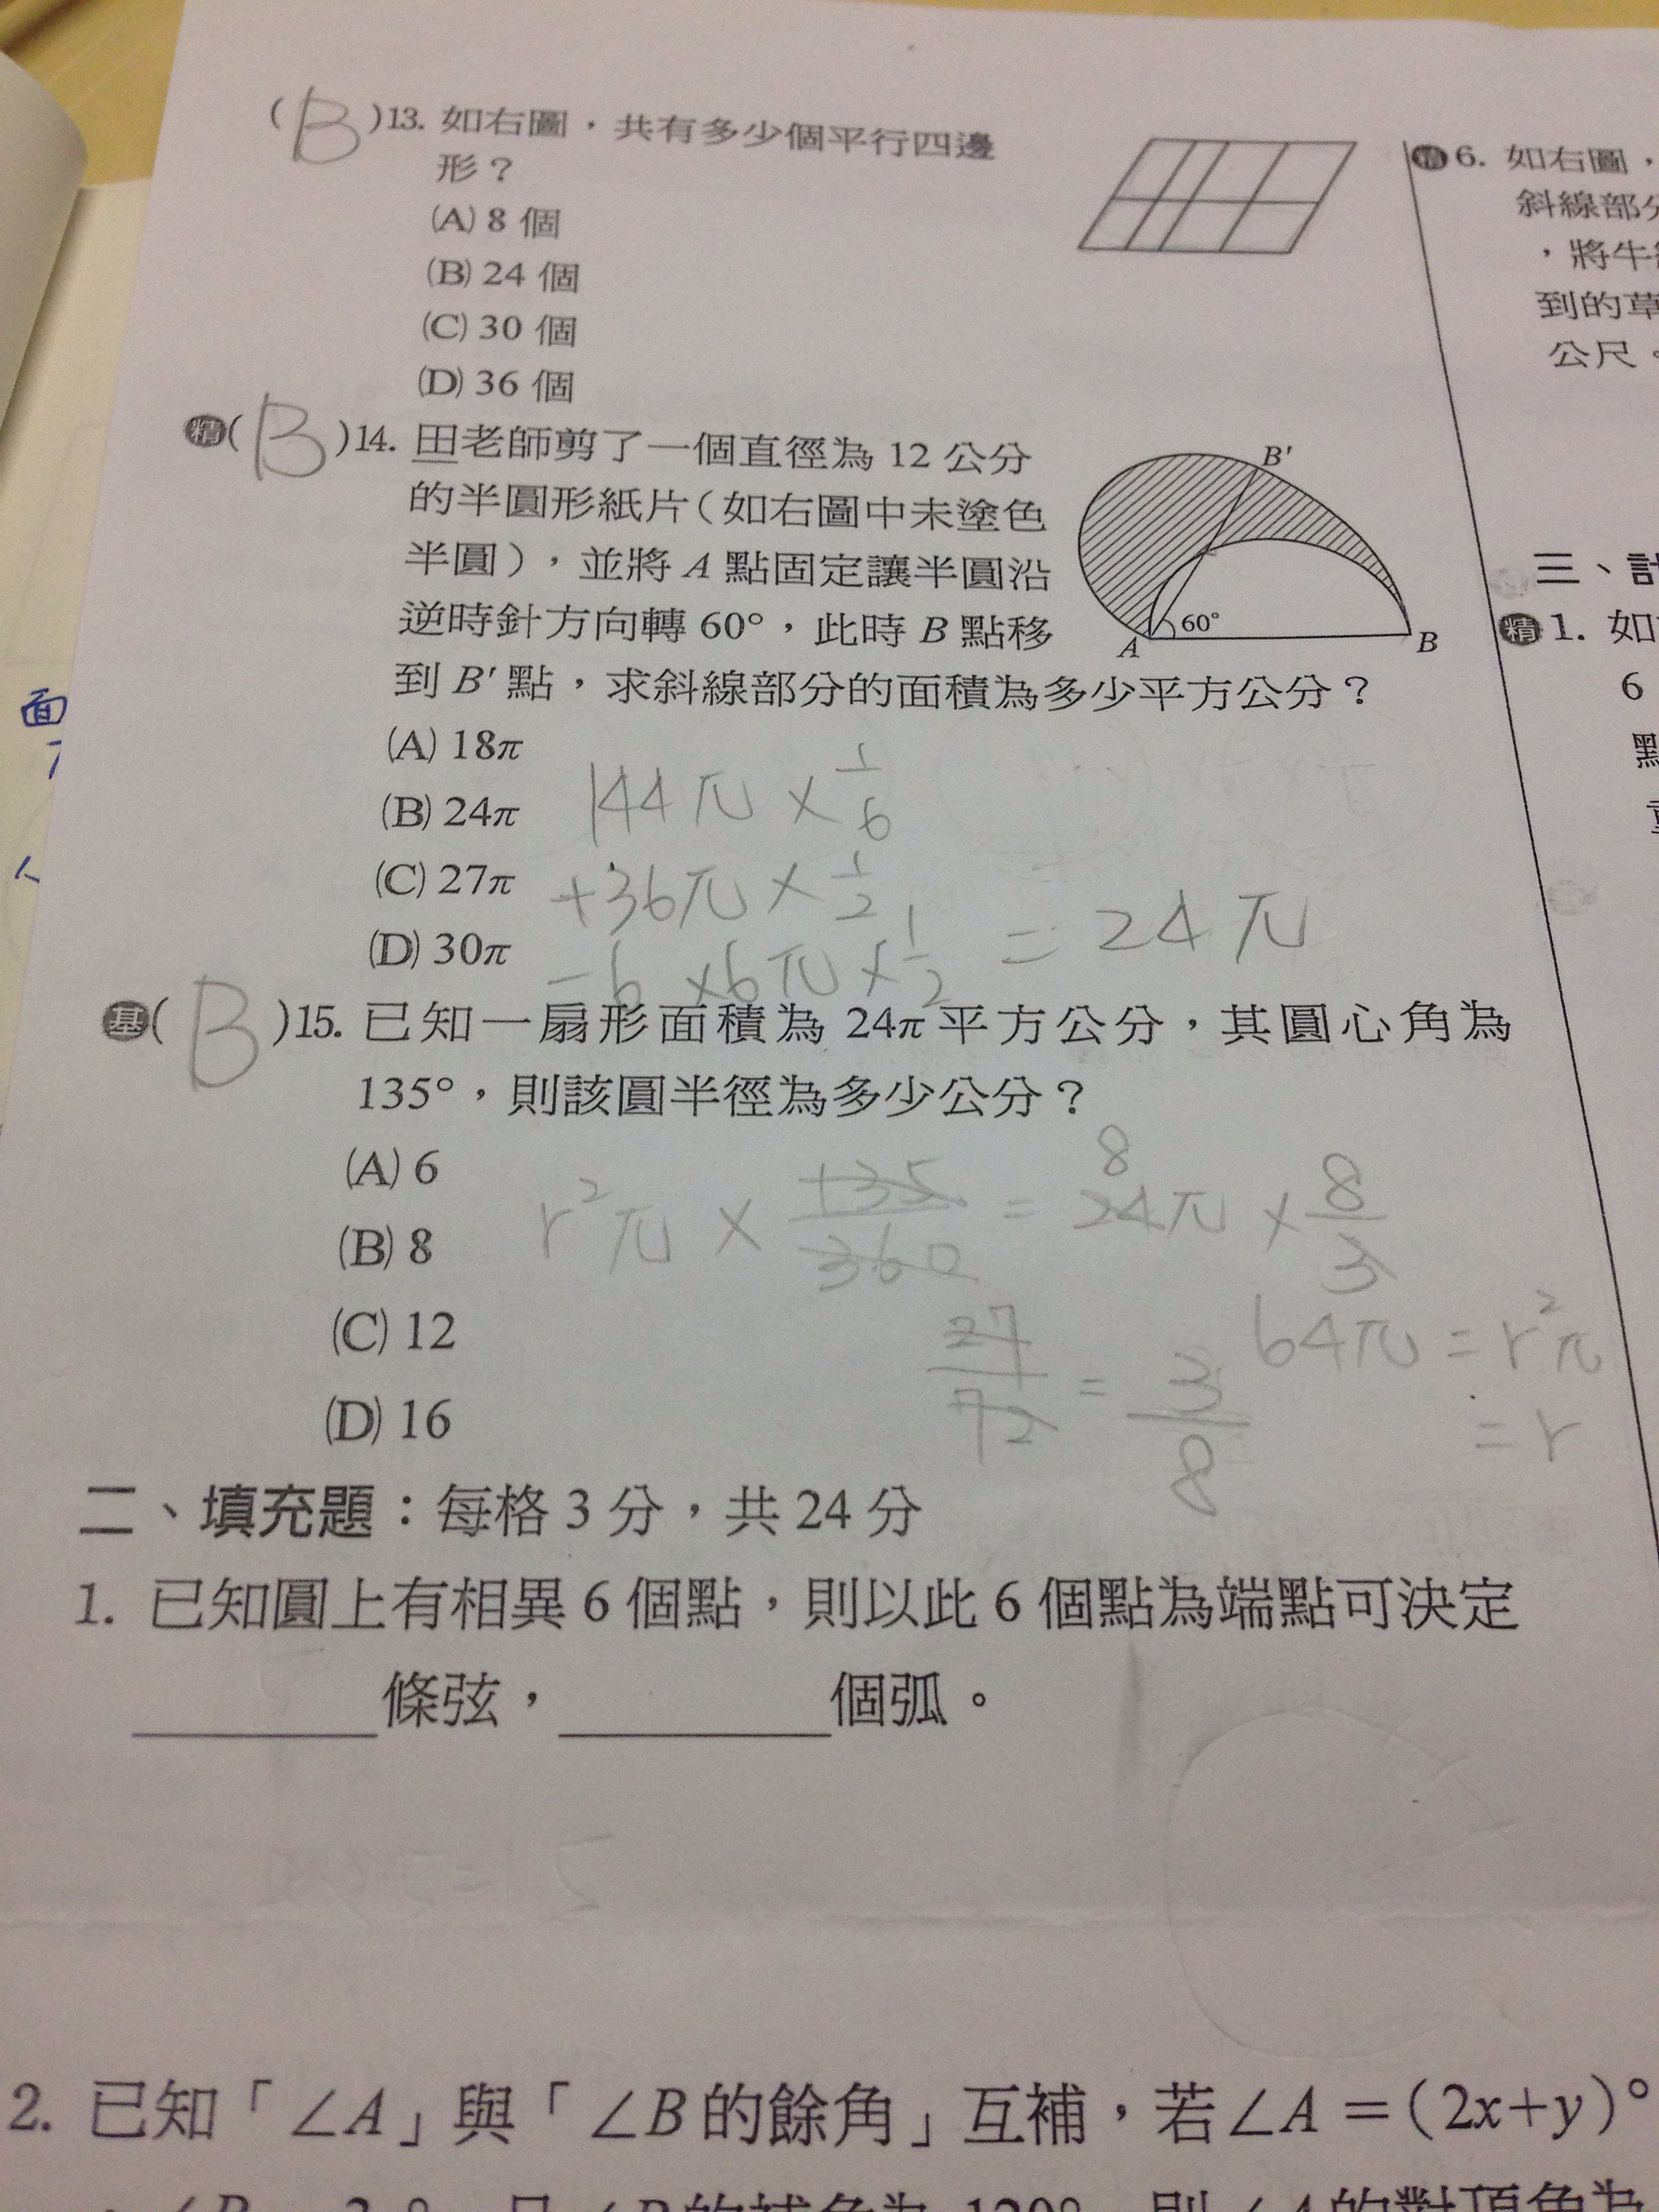 (B)13. 如右圖，共有多少個平行四邊
形？
(A) 8 個
(B) 24 個
(C) 30 個
(D) 36 個
精(B)14. 田老師剪了一個直徑為 12 公分
的半圓形紙片（如右圖中未塗色
半圓），並將 A 點固定讓半圓沿
逆時針方向轉 60°，此時 B 點移
到 B′ 點，求斜線部分的面積為多少平方公分？
B′
60°
A
B
(A) 18π
(B) 24π
(C) 27π
(D) 30π
144π × 1/6
+36π × 1/2
-6 × 6π × 1/2 = 24π
基(B)15. 已知一扇形面積為 24π 平方公分，其圓心角為
135°，則該圓半徑為多少公分？
(A) 6
(B) 8
(C) 12
(D) 16
r²π × 135/360 = 24π × 8/3
8
27/72 = 3/8
64π = r²π
= r
二、填充題：每格 3 分，共 24 分
1. 已知圓上有相異 6 個點，則以此 6 個點為端點可決定
條弦，個弧。
2. 已知「∠A」與「∠B 的餘角」互補，若∠A＝(2x+y)°
精6. 如右圖，
斜線部分
，將牛
到的草
公尺。
三、計
精1. 如
6
面